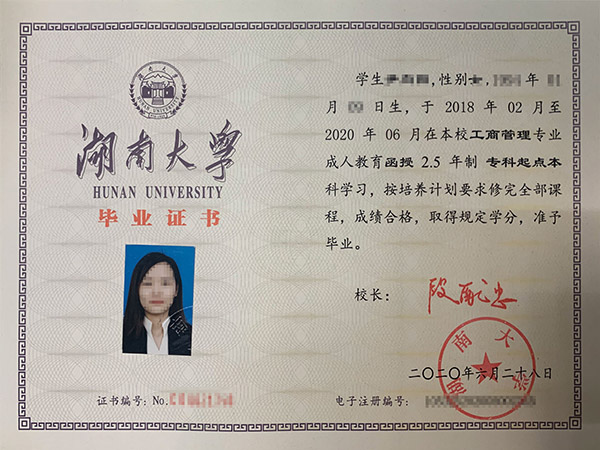 湖南大学
HUNAN UNIVERSITY
湖南大学
HUNAN UNIVERSITY
毕业证书
学生 ,性别女, 年
月 日生，于 2018 年 02 月至
2020 年 06 月在本校工商管理专业
成人教育函授 2.5 年制 专科起点本
科学习，按培养计划要求修完全部课
程，成绩合格，取得规定学分，准予
毕业。
校长：
湖南大学
二〇二〇年六月二十八日
证书编号：No.
电子注册编号：